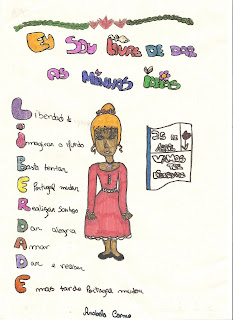 EU SOU LIVRE DE DAR
AS MINHAS IDEIAS
Liberdade é
Imaginar o mundo
Basta tentar
E Portugal mudar
Realizar sonhos
Dar alegria
Amar
Dar e receber
E mais tarde Portugal mudar
25 de
ABRIL
VAMOS
SER